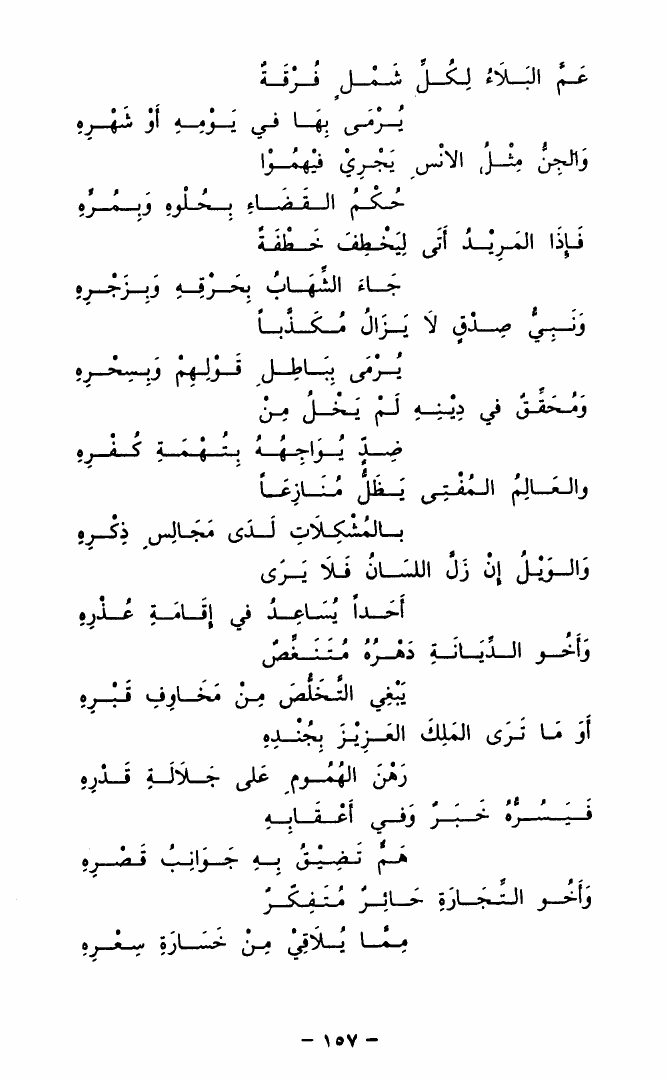 عَمَّ البَلَاءُ لِكُلِّ شَمْلٍ فُرْقَةٌ
يُرْمَى بِهَا في يَوْمِهِ أَوْ شَهْرِهِ
وَالجِنُّ مِثْلُ الانْسِ يَجْرِيْ فيْهِمُوْا
حُكْمُ القَضَاءِ بِحُلْوِهِ وَبِمُرِّهِ
فَإِذَا المَرِيْدُ أَتَى لِيَخْطِفَ خَطْفَةً
جَاءَ الشِّهَابُ بِحَرْقِهِ وَبِزَجْرِهِ
وَنَبِيُّ صِدْقٍ لَا يَزَالُ مُكَذَّباً
يُرْمَى بِبَاطِلِ قَوْلِهِمْ وَبِسِحْرِهِ
وَمُحَقِّقٌ في دِيْنِهِ لَمْ يَخْلُ مِنْ
ضِدٍّ يُوَاجِهُهُ بِتُهْمَةِ كُفْرِهِ
والعَالِمُ المُفْتِى يَظَلُّ مُنَازِعَاً
بالمُشْكِلَاتِ لَدَى مَجَالِسِ ذِكْرِهِ
وَالوَيْلُ إِنْ زَلَّ اللسَانُ فَلَا يَرَى
أَحَداً يُسَاعِدُ في إِقَامَةِ عُذْرِهِ
وَأَخُو الدِّيَانَةِ دَهْرُهُ مُتَنَغِّصٌ
يَبْغِي التَّخَلُّصَ مِنْ مَخَاوِفِ قَبْرِهِ
أَوَ مَا تَرَى المَلِكَ العَزِيْزَ بِجُنْدِهِ
رَهْنَ الهُمُومِ عَلى جَلَالَةِ قَدْرِهِ
فَيَسُرُّهُ خَبَرٌ وَفي أَعْقَابِهِ
هَمٌّ تَضِيْقُ بِهِ جَوَانِبُ قَصْرِهِ
وَأَخُو التِّجَارَةِ حَائِرٌ مُتَفِكِّرٌ
مِمَّا يُلَاقِيْ مِنْ خَسَارَةِ سِعْرِهِ
– ١٥٧ –